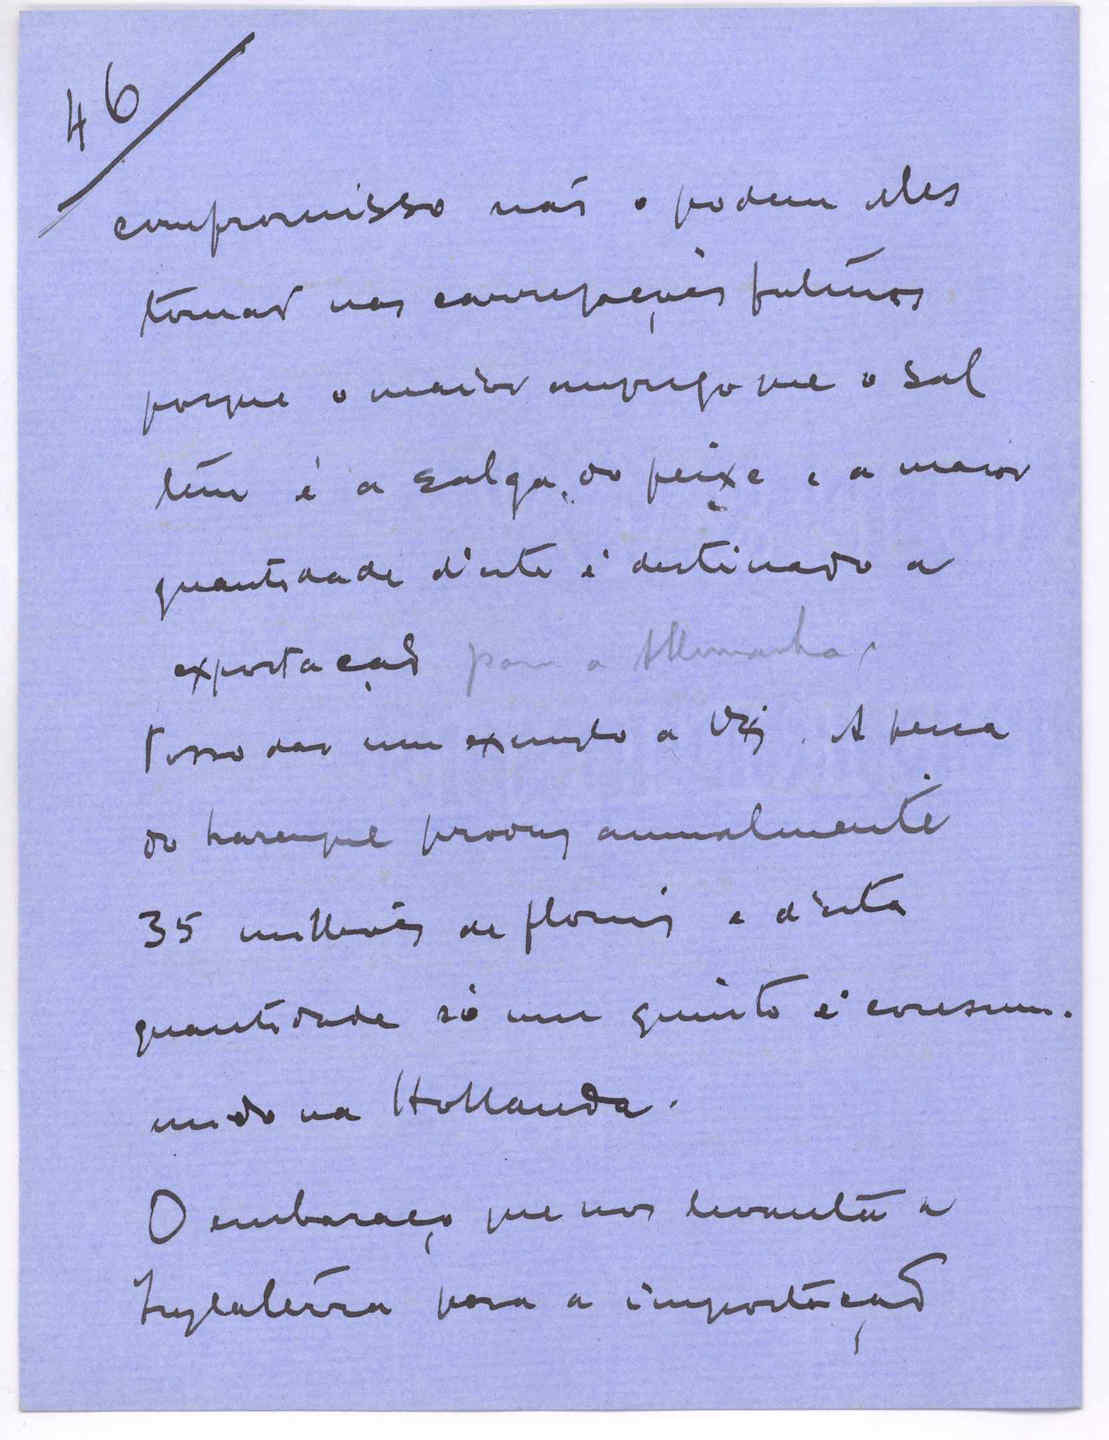 46
compromisso não o podem eles
tomar nas carregações futuras
porque o maior emprego que o sal
tem é a salga do peixe e a maior
quantidade d'este é destinado a
exportação para a Allemanha.
Posso dar um exemplo a V. A pesca
do harenque produz annualmente
35 milhões de florins e d'esta
quantidade só um quinto é consum-
mido na Hollanda.
O embaraço que nos levanta a
Inglaterra para a importação